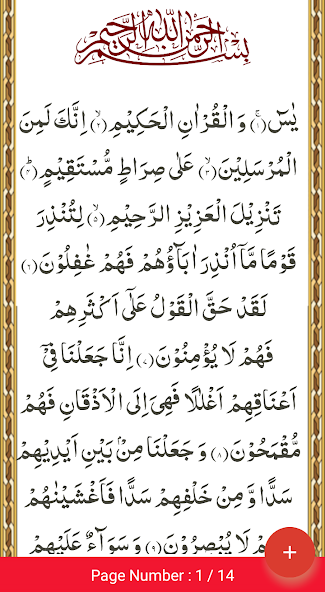 بسم الله الرحمن الرحيم
يٰسٓ ﴿۱﴾ وَ الْقُرْاٰنِ الْحَكِيْمِ ﴿۲﴾ اِنَّكَ لَمِنَ
الْمُرْسَلِيْنَ ﴿۳﴾ عَلٰى صِرَاطٍ مُّسْتَقِيْمٍ ﴿۴﴾
تَنْزِيْلَ الْعَزِيْزِ الرَّحِيْمِ ﴿۵﴾ لِتُنْذِرَ
قَوْمًا مَّاۤ اُنْذِرَ اٰبَآؤُهُمْ فَهُمْ غٰفِلُوْنَ ﴿۶﴾
لَقَدْ حَقَّ الْقَوْلُ عَلٰۤى اَكْثَرِهِمْ
فَهُمْ لَا يُؤْمِنُوْنَ ﴿۷﴾ اِنَّا جَعَلْنَا فِيْۤ
اَعْنَاقِهِمْ اَغْلٰلًا فَهِيَ اِلَى الْاَذْقَانِ فَهُمْ
مُّقْمَحُوْنَ ﴿۸﴾ وَ جَعَلْنَا مِنْۢ بَيْنِ اَيْدِيْهِمْ
سَدًّا وَّ مِنْ خَلْفِهِمْ سَدًّا فَاَغْشَيْنٰهُمْ
لَا يُبْصِرُوْنَ ﴿۹﴾ وَ سَوَآءٌ عَلَيْهِمْ
Page Number : 1 / 14